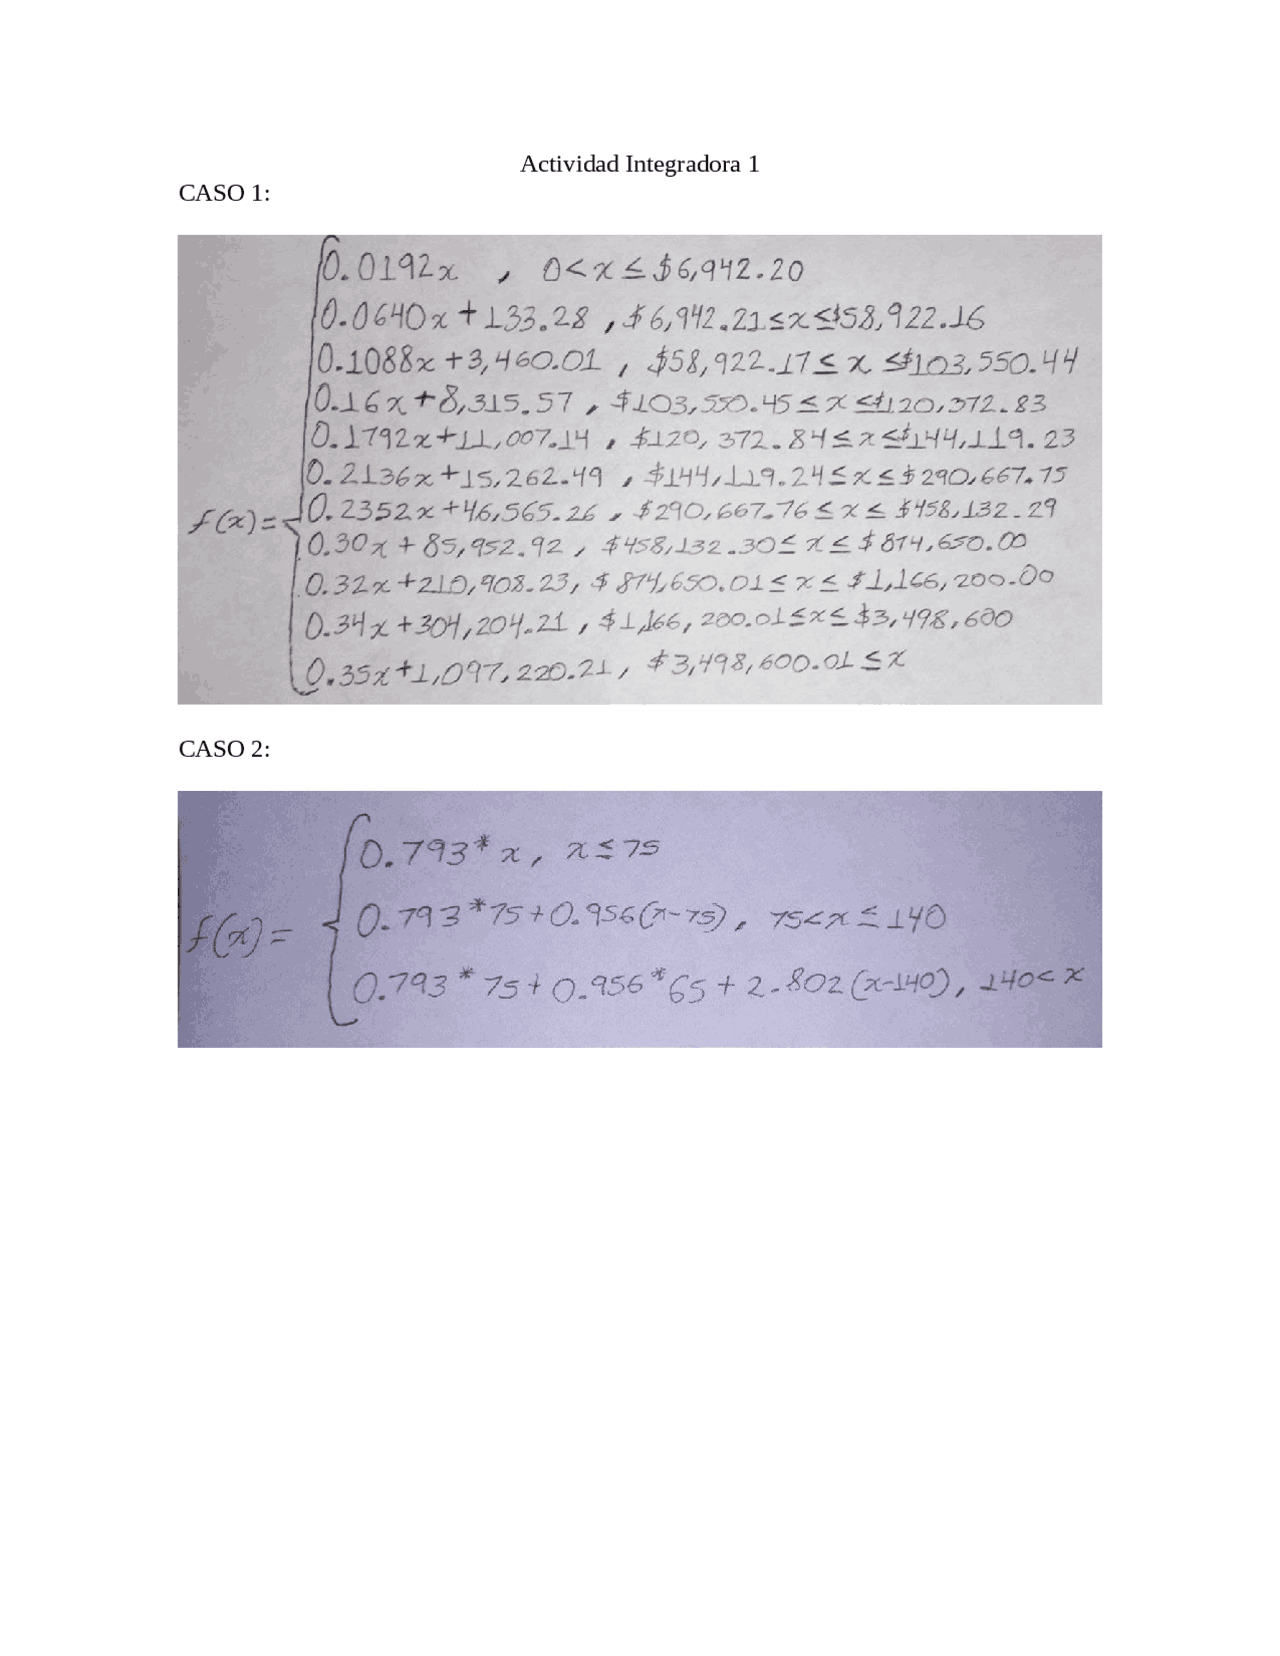 Actividad Integradora 1
CASO 1:
0.0192x , 0<x≤$6,942.20
0.0640x+133.28 , $6,942.21≤x≤$58,922.16
0.1088x+3,460.01 , $58,922.17≤x≤$103,550.44
0.16x+8,315.57 , $103,550.45≤x≤$120,372.83
0.1792x+11,007.14 , $120,372.84≤x≤$144,119.23
0.2136x+15,262.49 , $144,119.24≤x≤$290,667.75
f(x)= 0.2352x+46,565.26 , $290,667.76≤x≤$458,132.29
0.30x+85,952.92 , $458,132.30≤x≤$874,650.00
0.32x+210,908.23, $874,650.01≤x≤$1,166,200.00
0.34x+304,204.21 , $1,166,200.01≤x≤$3,498,600
0.35x+1,097,220.21, $3,498,600.01≤x
CASO 2:
0.793*x, x≤75
f(x)= 0.793*75+0.956(x-75), 75<x≤140
0.793*75+0.956*65+2.802(x-140), 140<x